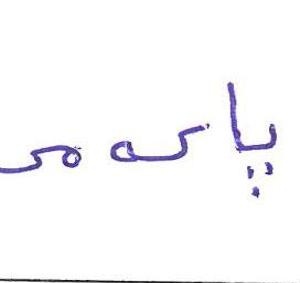 پا که می